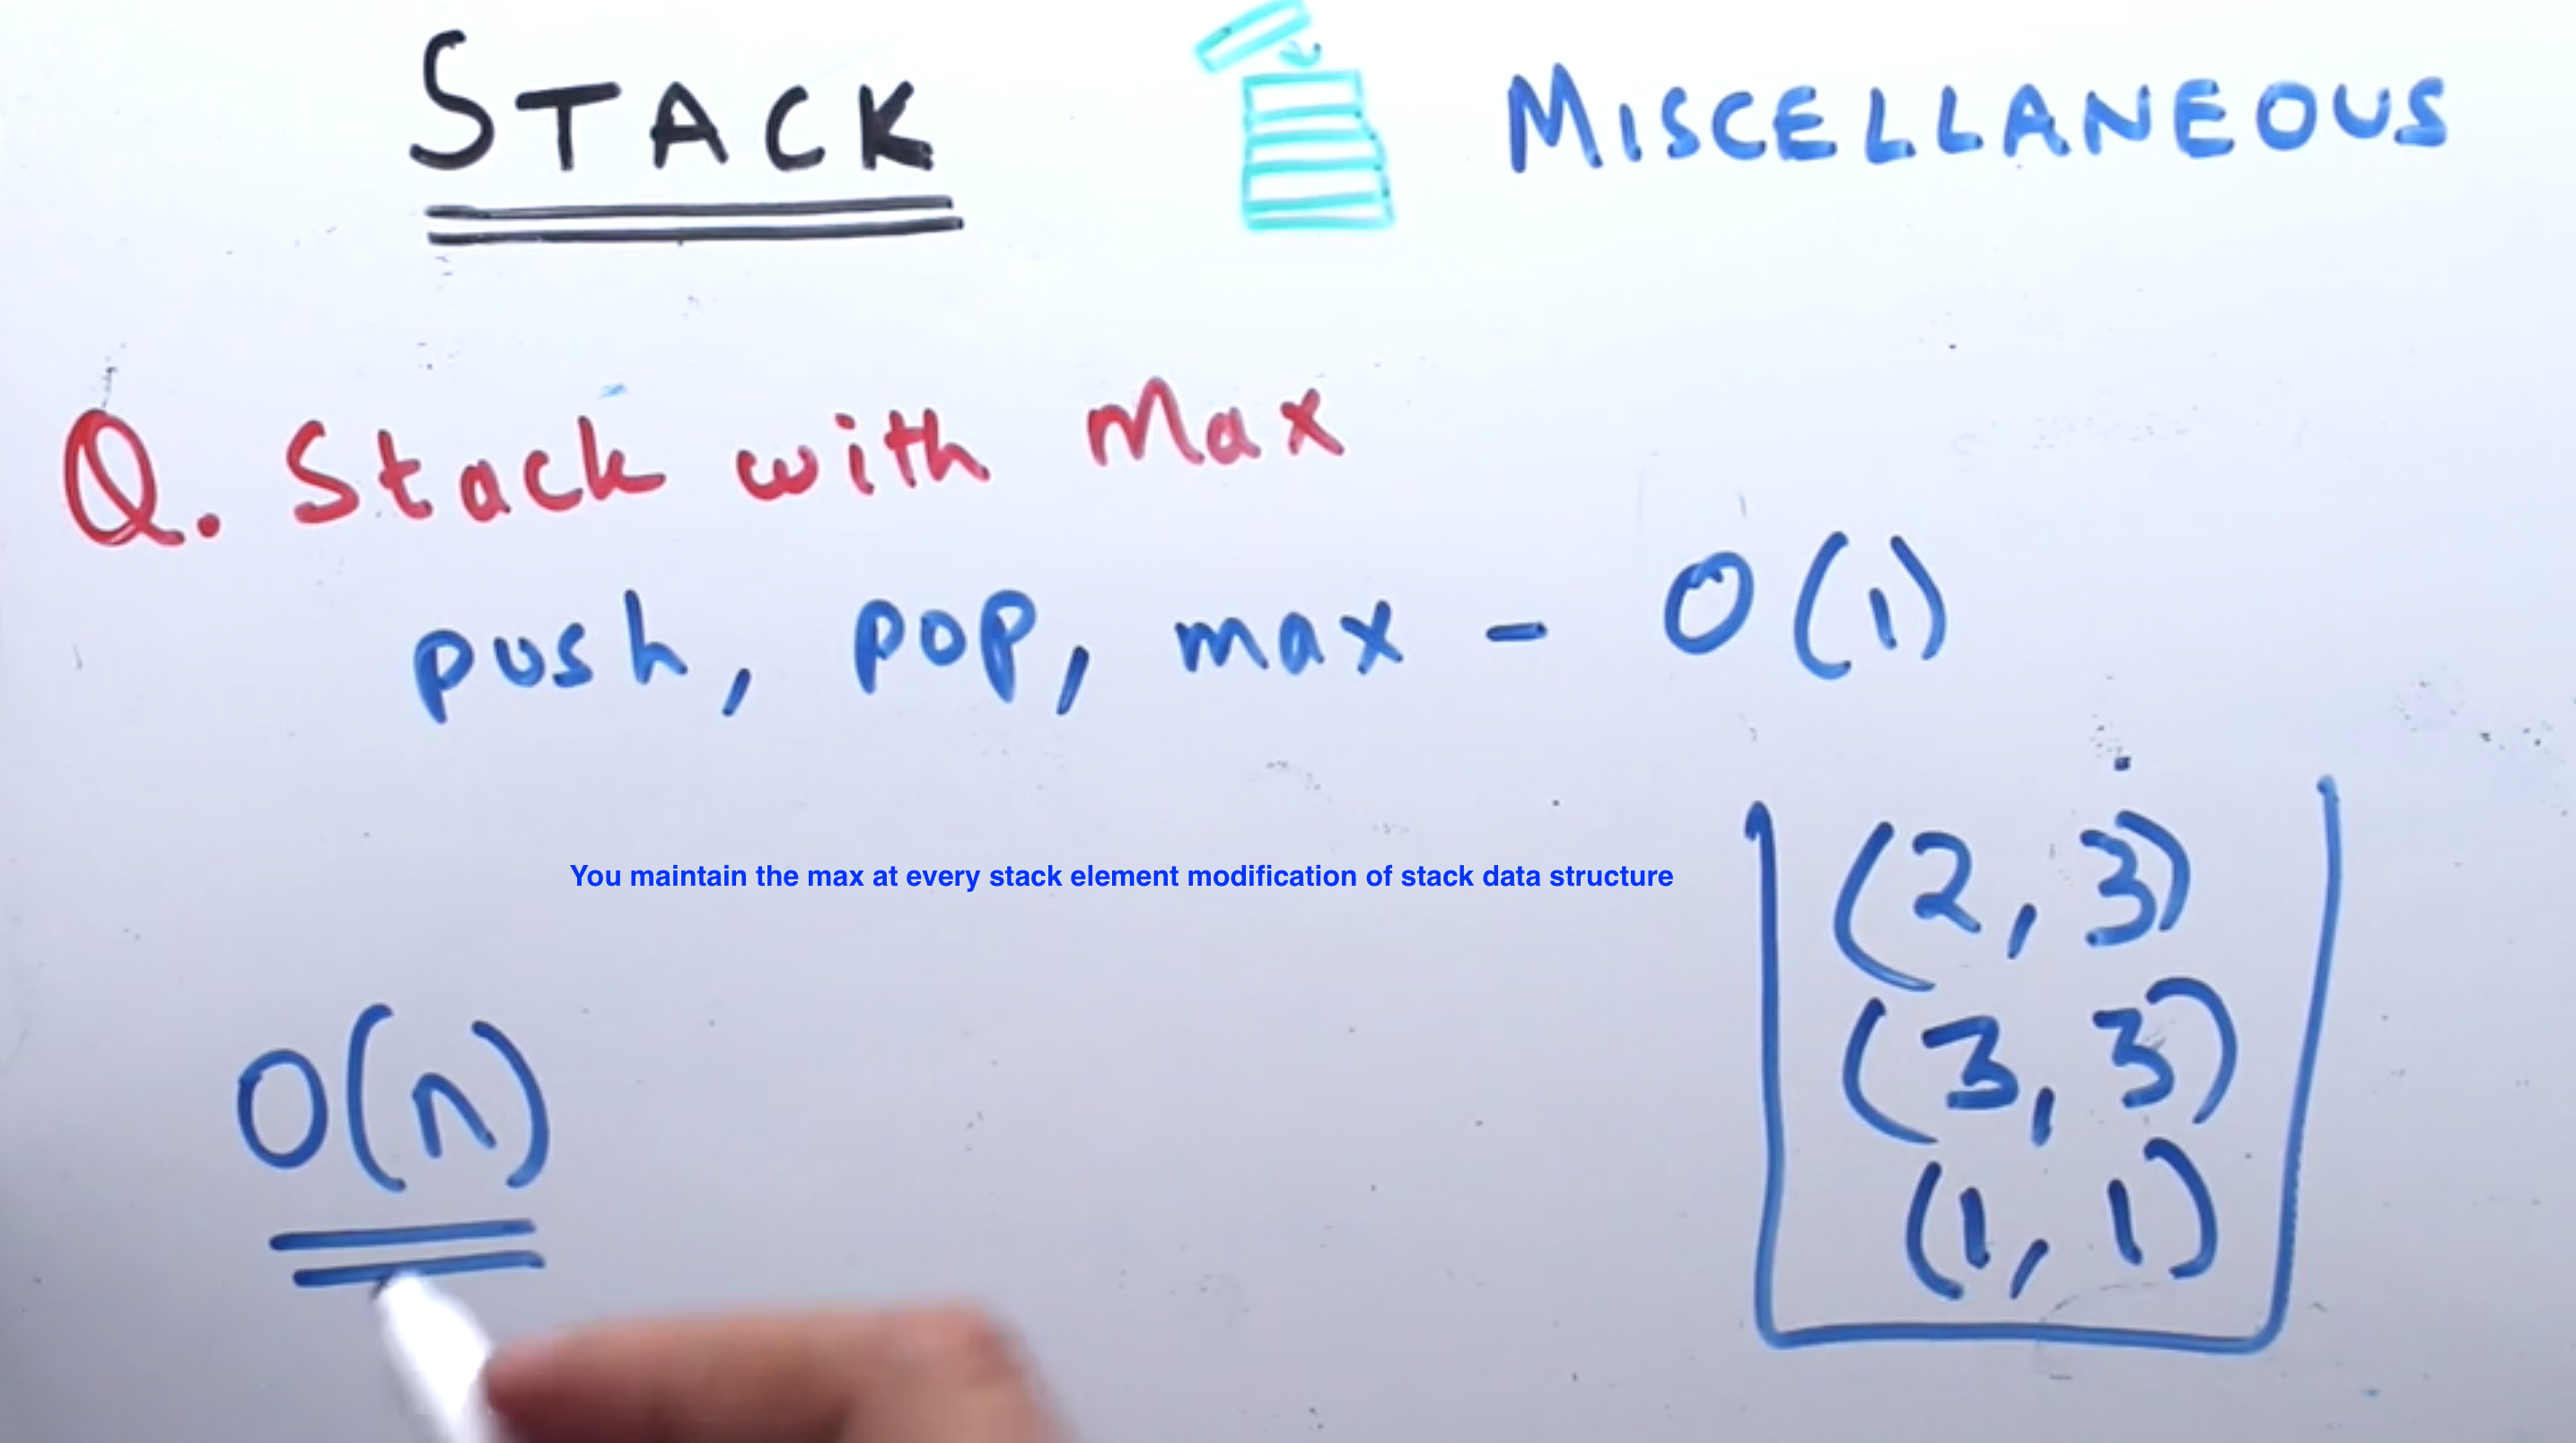 STACK
MISCELLANEOUS
Q. Stack with Max
push, pop, max - O(1)
You maintain the max at every stack element modification of stack data structure
(2, 3)
(3, 3)
(1, 1)
O(n)